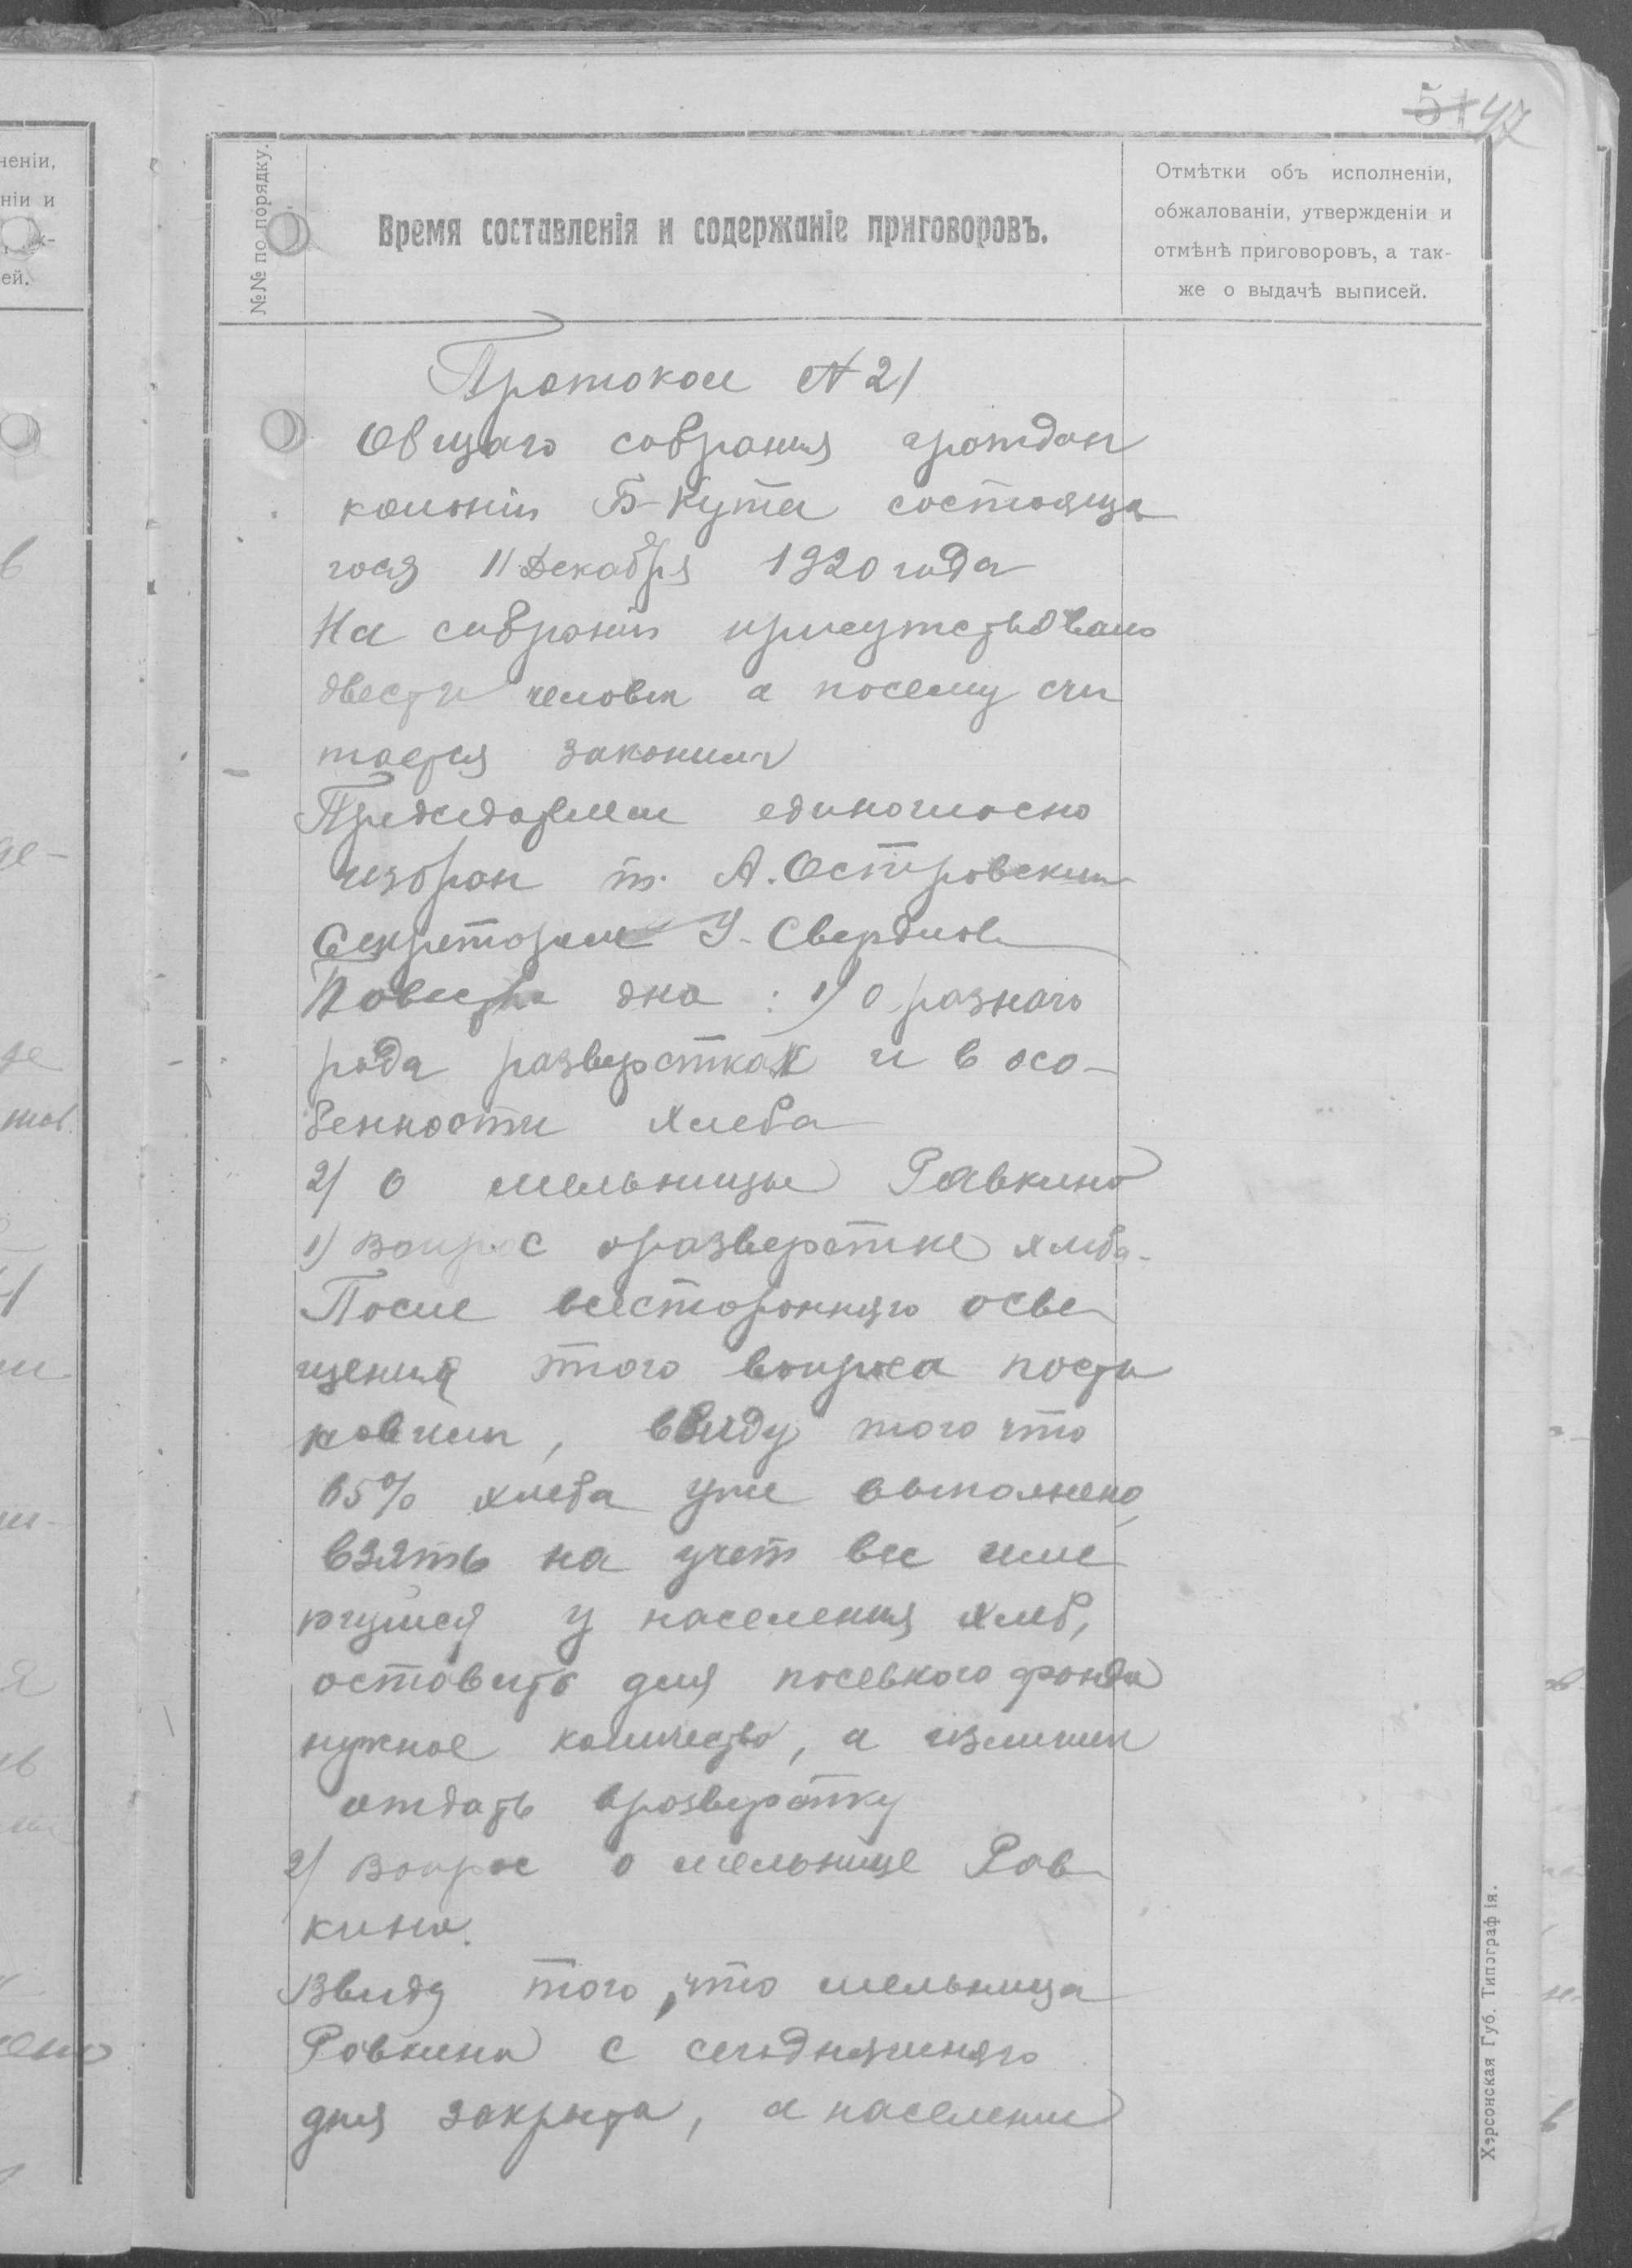 51 47
№№ по порядку.
Время составленія и содержаніе приговоровъ.
Отмѣтки объ исполненіи,
обжалованіи, утвержденіи и
отмѣнѣ приговоровъ, а так-
же о выдачѣ выписей.
Протокол N 21
Общаго собрания граждан
колонiи Б-Кута состояща
гося 11 Декабря 1920 года
На собранiи присутствовало
двести человек а посему счи
тается законным
Председателем единогласно
избран т. А. Островский
Секретарем У. Свердлов
Повестка дна: 1) О разнаго
рода разверстках и в осо-
бенности хлеба
2) О мельницы Равкина
1) Вопрос о разверстке хлеба.
После всесторонняго осве
щения этого вопроса поста
новили, ввиду того что
65% хлеба уже выполнено,
взять на учет все име
ющийся у населения хлеб,
оставить для посевного фонда
нужное количество, а излишки
отдать в розверстку
2) Вопрос о мельнице Рав
кина.
Ввиду того, что мельница
Равкина с сегодняшняго
дня закрыта, а население
Херсонская Губ. Типографія.